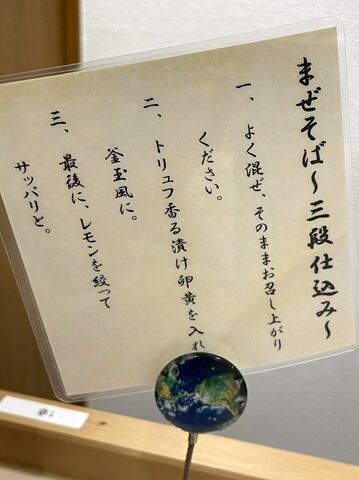 まぜそば～三段仕込み～
一、よく混ぜ、そのままお召し上がり
ください。
二、トリュフ香る漬け卵黄を入れ
釜玉風に。
三、最後に、レモンを絞って
サッパリと。